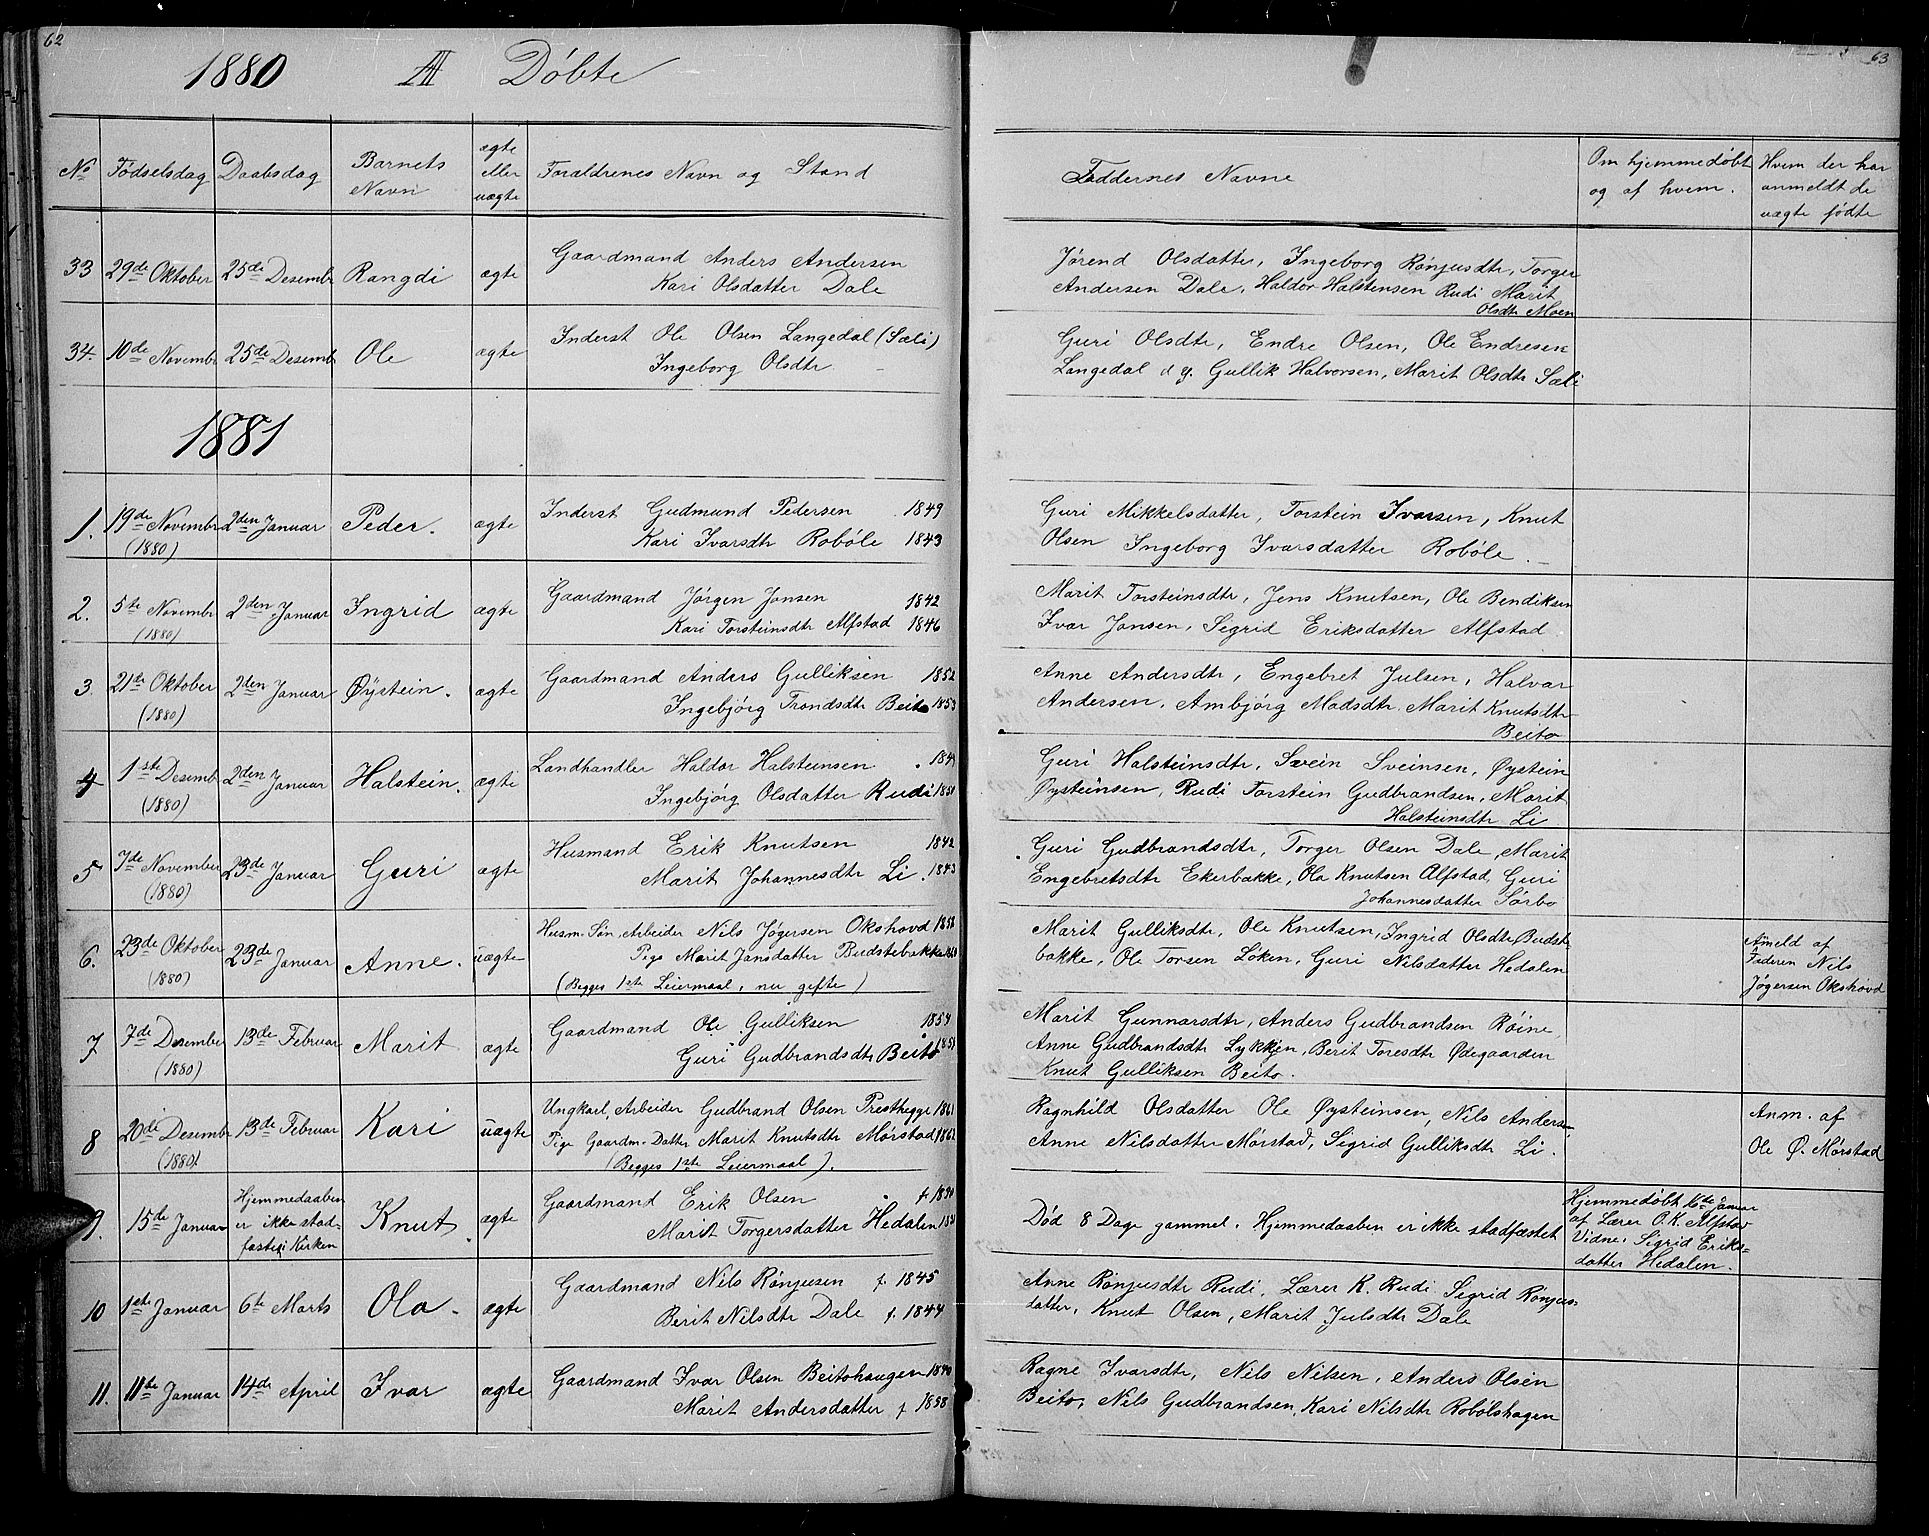 62
1880 A Döbte
No Födselsdag Daabsdag Barnets Navn ægte eller uægte Foraldrenes Navn og Stand
33 29de Oktober 25de Desembr Rangdi ægte Gaardmand Anders Andersen
Kari Olsdatter Dale
34. 10de Novembr 25de Desemb Ole ægte Inderst Ole Olsen Langedal (Sæli)
Ingeborg Olsdtr –
1881
1. 19de Novembr (1880) 2den Januar Peder. ægte Inderst Gudmund Pedersen 1849
Kari Ivarsdtr Robøle 1843
2. 5te Novembr (1880) 2den Januar Ingrid ægte Gaardmand Jørgen Jonsen 1842
Kari Torsteinsdtr Alfstad 1846
3 21de Oktober (1880) 2den Januar Øystein. ægte Gaardmand Anders Gulliksen 1852
Ingebjörg Trondsdtr Beito 1853
4 1ste Desemb (1880) 2den Januar Halstein. ægte Landhandler Haldor Halsteinsen
Ingebjörg Olsdatter Rudi 1850
5 7de November (1880) 23de Januar Guri ægte Husmand Erik Knutsen 1842
Marit Johannesdtr Li. 1843
6. 23de Oktober (1880) 23de Januar Anne. uægte Husm. Søn, Arbeider Nils Jøgersen Okshovd 1858
Pige Marit Jansdatter Budstebakke
(Begges 1ste Leiermaal, nu gifte)
7 7de Desember (1880) 13de Februar Marit ægte Gaardmand Ole Gulliksen 1854
Guri Gudbrandsdtr Beito
8 20de Desembr (1880) 13de Februar Kari uægte Ungkarl, Arbeider Gudbrand Olsen Presthegge 1861
Pige Gaardm-Datter Marit Knutsdtr Mørstad 1862
(Begges 1ste Leiermaal).
9. 15de Januar Hjemmedaaben er ikke stadfastei Kirken Knut ægte Gaardmand Erik Olsen
Marit Torgersdatter Hedalen
10 1ste Januar 6te Marts Ola. ægte Gaardmand Nils Rönjusen f. 1845
Berit Nilsdtr Dale f. 1844
11. 11te Januar 14de April Ivar ægte Gaardmand Ivar Olsen Beitohaugen 1840
Marit Andersdatter f 1858
63
Faddernes Navne Om hjemmedøbt og af hvem. Hvem der har anmeldt de uægte fødte
Jørend Olsdatter, Ingeborg Rönjusdtr, Torger
Andersen Dale, Haldor Halstensen Rudi Marit
Olsdtr Moen
Guri Olsdtr, Endre Olsen, Ole Endresen
Langedal d y. Gullik Halvorsen, Marit Olsdtr Sæli
Guri Mikkelsdatter, Torstein Ivarsen, Knut
Olsen Ingeborg Ivarsdatter Robøle.
Marit Torsteinsdtr, Jens Knutsen, Ole Bendiksen
Ivar Jansen, Sigrid Eriksdatter Alfstad.
Anne Andersdtr, Engebret Julsen, Halvar
Andersen, Ambjørg Madsdtr. Marit Knutsdtr
Beito
Guri Halsteinsdtr, Svein Sveinsen, Øystein
Øysteinsen, Rudi Torstein Gudbrandsen, Marit
Halsteinsdtr Li
Guri Gudbrandsdtr, Torger Olsen Dale, Marit
Engebretsdtr Ekerbakke, Ola Knutsen Alfstad, Guri
Johannesdatter Sørbo
Marit Gulliksdtr, Ole Knutsen, Ingrid Olsdtr Budste
bakke, Ole Torsen Løken, Guri Nilsdatter Hedalen
Anmeld af
Faderen Nils
Jøgersen Okshovd
Marit Gunnarsdtr, Anders Gudbrandsen Røine,
Anne Gudbrandsdtr Lykkjen, Berit Toresdtr Ødegaarden
Knut Gulliksen Beito.
Ragnhild Olsdatter Ole Øysteinsen, Nils Anders
Anne Nilsdatter Mørstad, Sigrid Gulliksdtr Li.
Anm. af
Ole Ø. Mørstad
Död 8 Dage gammel. Hjemmedaaben er ikke stadfæstet
Hjemmedøbt 16de Januar
af Lærer O.K. Alfstad
Vidne: Sigrid Eriks-
datter Hedalen.
Anne Rönjusdtr Rudi, Lærer K. Rudi Sigrid Rönjus
datter, Knut Olsen, Marit Julsdtr Dale
Ragne Ivarsdtr, Nils Nilsen, Anders Olsen
Beito, Nils Gudbrandsen, Kari Nilsdtr Robølshagen